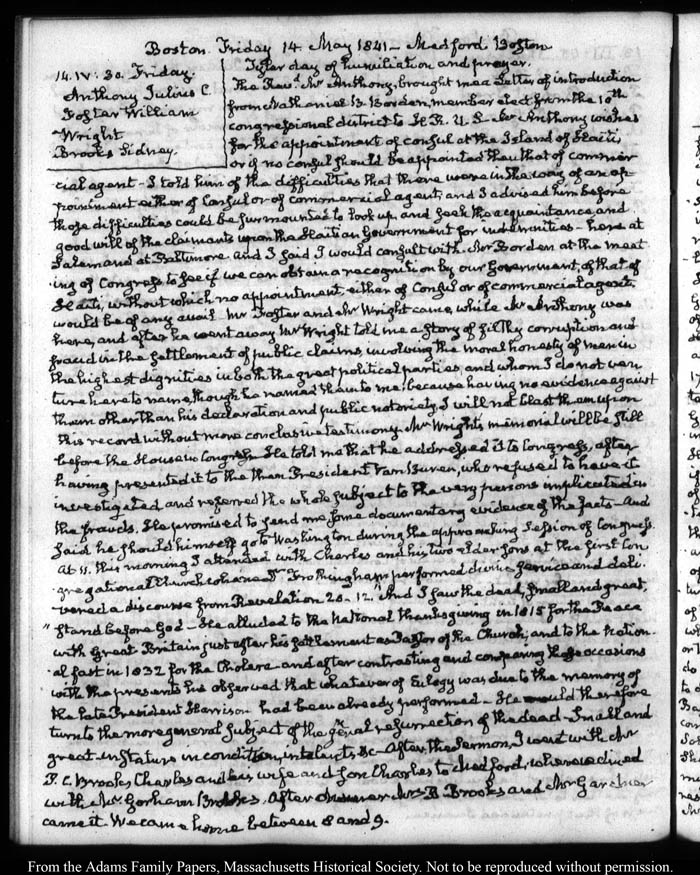 Boston Friday 14. May 1841 - Medford Boston
14. IV: 30. Friday.
Anthony Julius C.
Foster William
Wright
Brooks Sidney.
day of humiliation and prayer.
The Revd. Mr. Anthony, brought me a Letter of introduction
from Nathaniel B. Borden, member elect from the 10th
congressional district to H. R. U. S. Mr. Anthony wishes
for the appointment of Consul at the Island of Hayti
or if no consul should be appointed then that of commer
cial agent - I told him of the difficulties that there were in the way of an ap-
pointment either of Consul or of commercial agent, and I advised him before
those difficulties could be surmounted to look up, and seek the acquaintance, and
good will of the claimants upon the Haitian Government for indemnities - here at
Salem and at Baltimore and I said I would consult with Mr Borden at the meet
ing of Congress to see if we can obtain a recognition by our Government, of that of
Hayti, without which no appointment, either of Consul or of commercial agent
would be of any avail Mr Foster and Mr Wright came while Mr Anthony was
here, and after he went away Mr Wright told me a story of filthy corruption and
fraud in the settlement of public claims, involving the moral honesty of men in
the highest dignities in both the great political parties, and whom I do not ven
ture here to name, though he named them to me; because having no evidence against
them other than his declaration and public notoriety, I will not blast them upon
this record without more conclusive testimony. Mr Wright's memorial will be still
before the House in Congress He told me that he addressed it to Congress, after
having presented it to the then President Van Buren, who refused to have it
investigated and referred the whole subject to the very persons implicated in
the frauds. He promised to send me some documentary evidence of the facts - And
said he should himself go to Washington during the approaching Session of Congress.
At 11. this morning I attended with Charles and his two elder sons at the first Con
gregational Church where Dr Frothingham performed divine service and deli-
vered a discourse from Revelation 20. 12. And I saw the dead, small and great,
" stand before God - He alluded to the National thanksgiving in 1815 for the Peace
with Great Britain just after his settlement as Pastor of the Church, and to the Nation
al fast in 1832 for the Cholera - and after contrasting and comparing those occasions
with the present he observed that whatever of Eulogy was due to the memory of
the late President Harrison had been already performed - He would therefore
turn to the more general subject of the general resurrection of the dead - Small and
great in stature in condition, in talents, &c - After the Sermon, I went with Mr
P. C. Brooks, Charles and his wife and son Charles to Medford, where we dined
with Mr. Gorham Brooks. After dinner Mrs B Brooks and Mr Gardner
came in. We came home between 8 and 9.
From the Adams Family Papers, Massachusetts Historical Society. Not to be reproduced without permission.